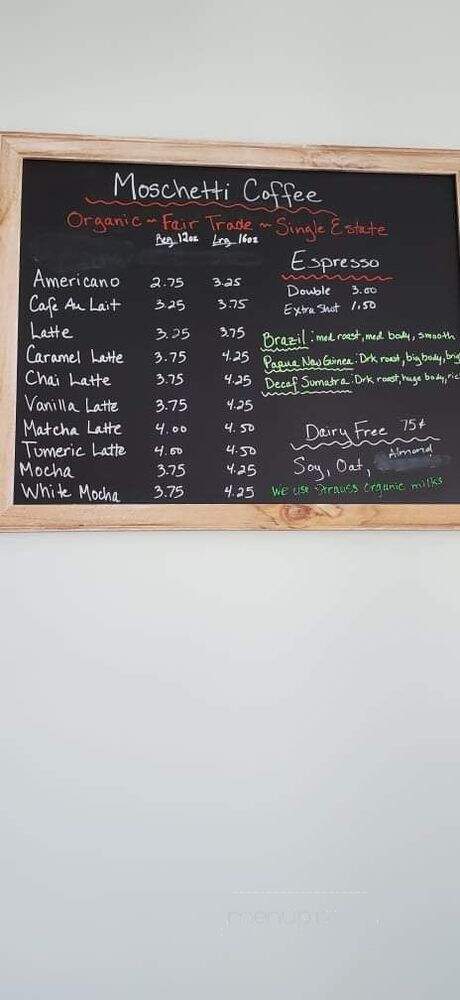 Moschetti Coffee
Organic ~ Fair Trade ~ Single Estate
Reg 12oz Lrg 16oz
Americano 2.75 3.25
Cafe Au Lait 3.25 3.75
Latte 3.25 3.75
Caramel Latte 3.75 4.25
Chai Latte 3.75 4.25
Vanilla Latte 3.75 4.25
Matcha Latte 4.00 4.50
Tumeric Latte 4.00 4.50
Mocha 3.75 4.25
White Mocha 3.75 4.25
Espresso
Double 3.00
Extra Shot 1.50
Brazil: med roast, med body, smooth
Papua New Guinea: Drk roast, big body,
Decaf Sumatra: Drk roast, huge body,
Dairy Free 75¢
Soy, Oat, Almond
We use Strauss Organic milks